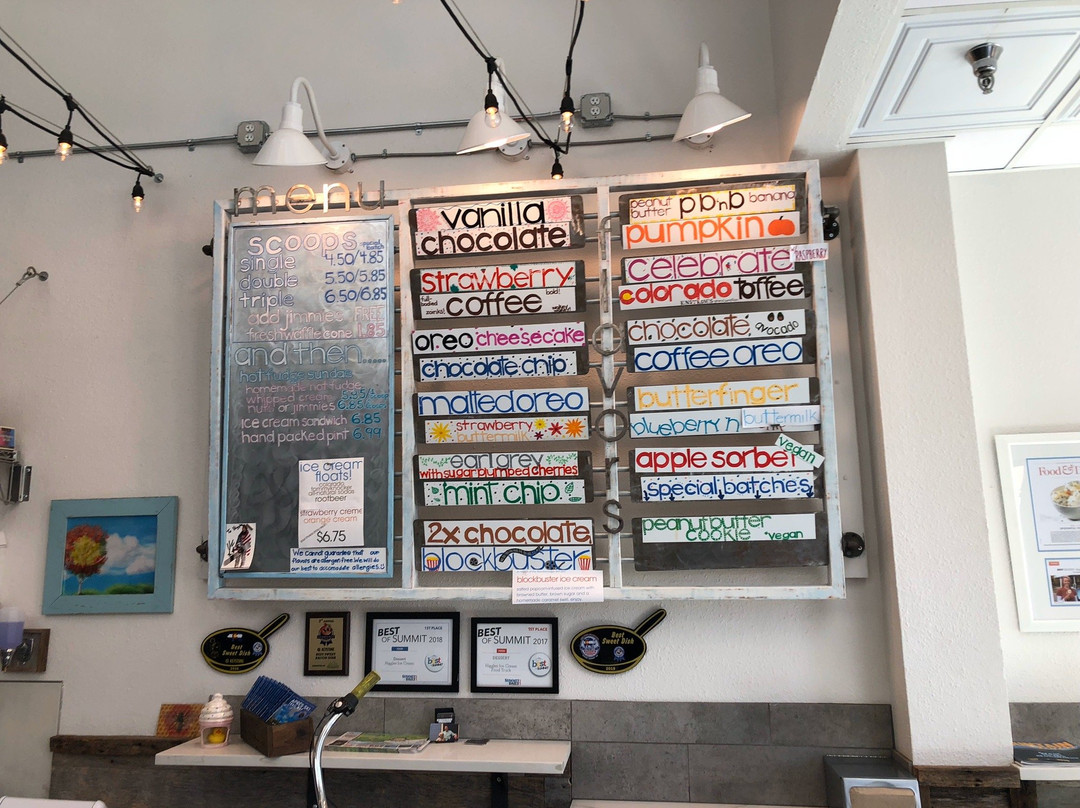 menu
scoops
single 4.50/4.85
double 5.50/5.85
triple 6.50/6.85
add jimmies FREE
fresh waffle cone 1.85
and then.....
hot fudge sundae
homemade hot fudge
whipped cream
nuts or jimmies
ice cream sandwich 6.85
hand packed pint 6.99
ice cream
floats!
colorado
all-natural sodas
rootbeer
strawberry creme
orange cream
$6.75
We cannot guarantee that our
flavors are allergen free. We will do
our best to accomodate allergies!
vanilla
chocolate
strawberry
coffee
bold!
oreo cheesecake
chocolate chip
malted oreo
strawberry
buttermilk
earl grey
with sugar plumped cherries
mint chip
2x chocolate
blockbuster
blockbuster ice cream
salted popcorn infused ice cream with
browned butter, brown sugar and a
homemade caramel kiss. enjoy.
flavors
peanut butter pb'n'b banana
pumpkin
celebrate RASPBERRY
colorado toffee
chocolate avocado
coffee oreo
butterfinger
blueberry n buttermilk
apple sorbet vegan
special batches
peanutbutter
cookie *vegan
Best
Sweet Dish
BEST
OF SUMMIT 2018
1ST PLACE
BEST
OF SUMMIT 2017
1ST PLACE
DESSERT
best
Best
Sweet Dish